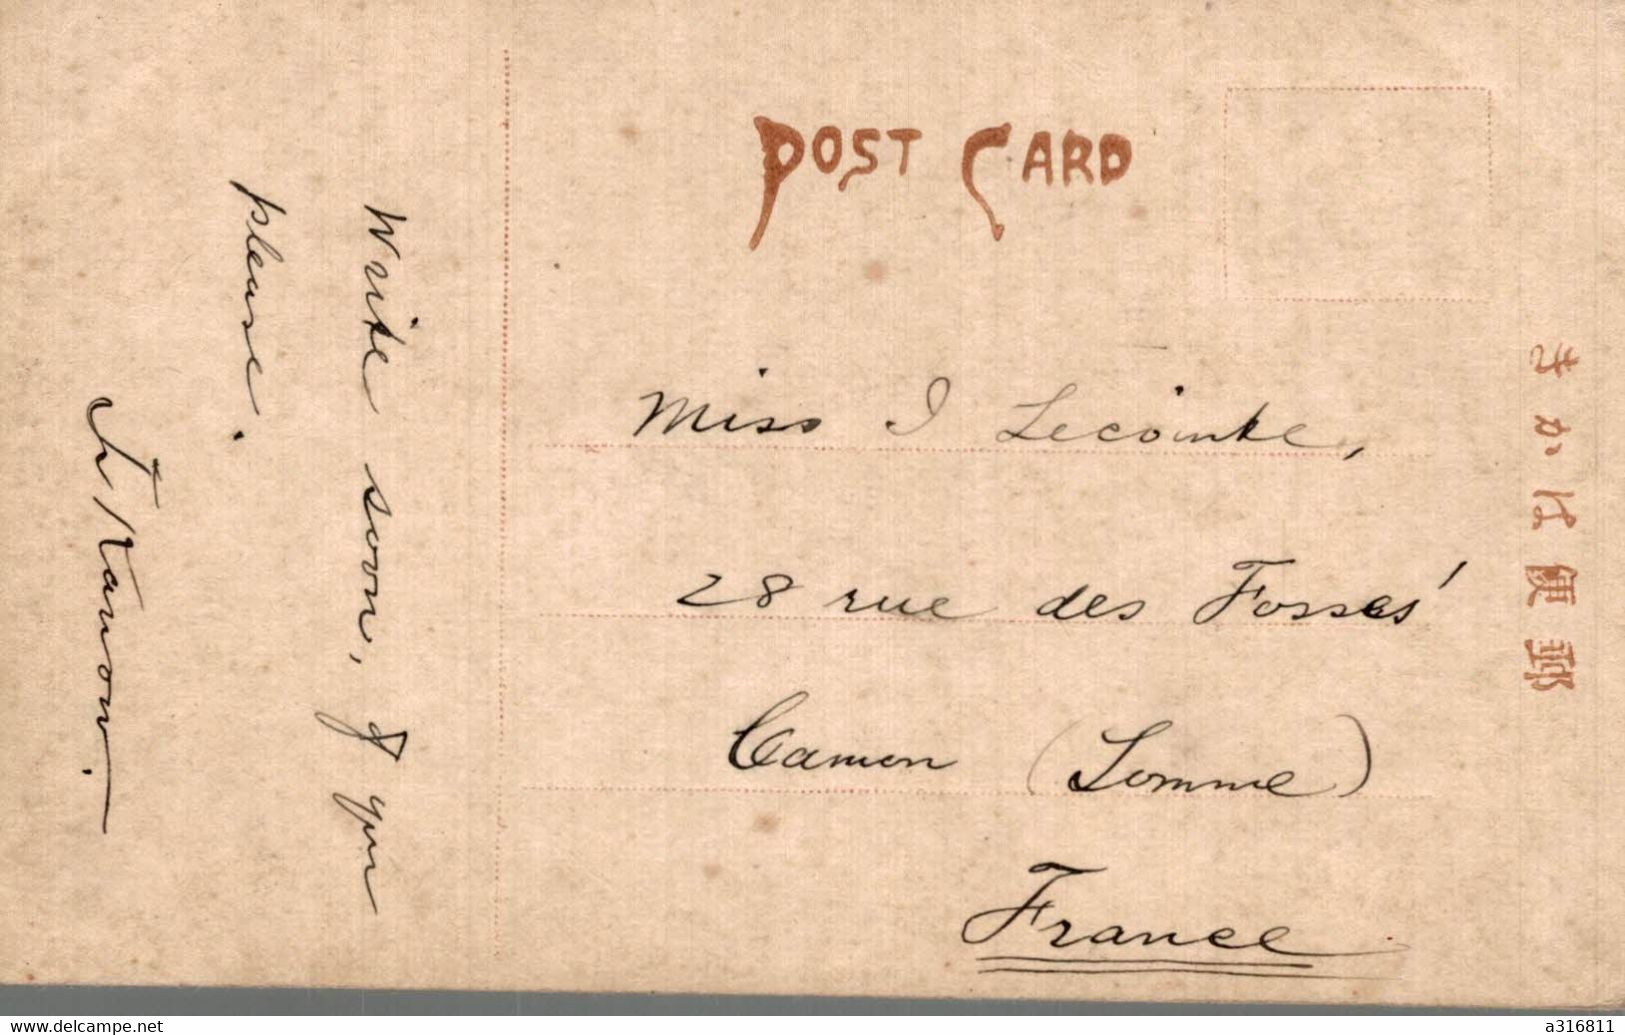 POST CARD
きかは便郵
Miss I Lecointe,
28 rue des Fossés
Camon (Somme)
France
Write soon, if you
please.
www.delcampe.net
a316811